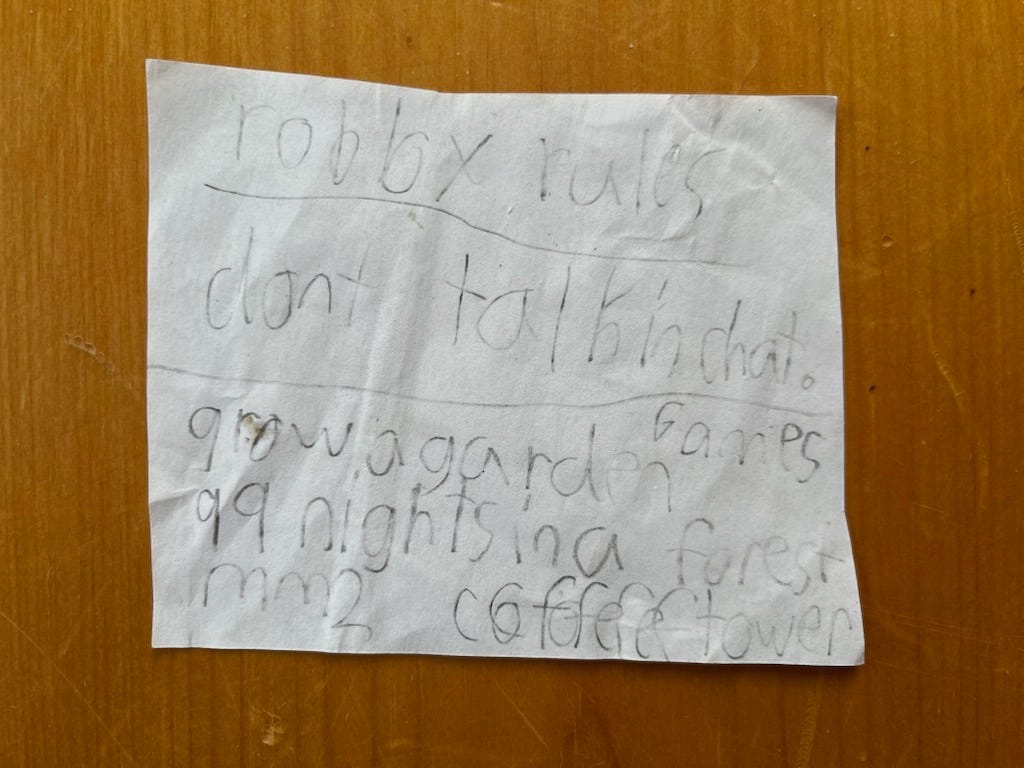 robbx rules
dont talb in chat.
Games
grow a garden
99 nights in a forest
mm2 coffee tower